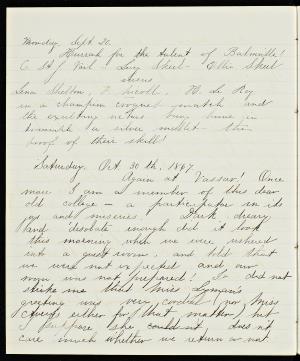 Monday, Sept. 20.
Hurrah for the talent of Balmville!
Skeel - Ellen Skeel
versus
Lena Shelton, F. Nicoll, H. Le Roy
in a champion croquet match and
the exulting victors bring home in
triumph a silver mallet - the
proof of their skill!
Saturday. Oct. 30th, 1897
Again at Vassar! Once
more I am a member of this dear
old college - a participator in its
joys and miseries. Dark, dreary
and disolate enough did it look
this morning when we were ushered
into a guest room, and told that
we were not expected and our
room was not prepared! It did not
strike me that Miss Lyman's
greeting was very cordial (nor Miss
either for that matter) but
I suppose she couldn't, does n't
care much whether we return or not